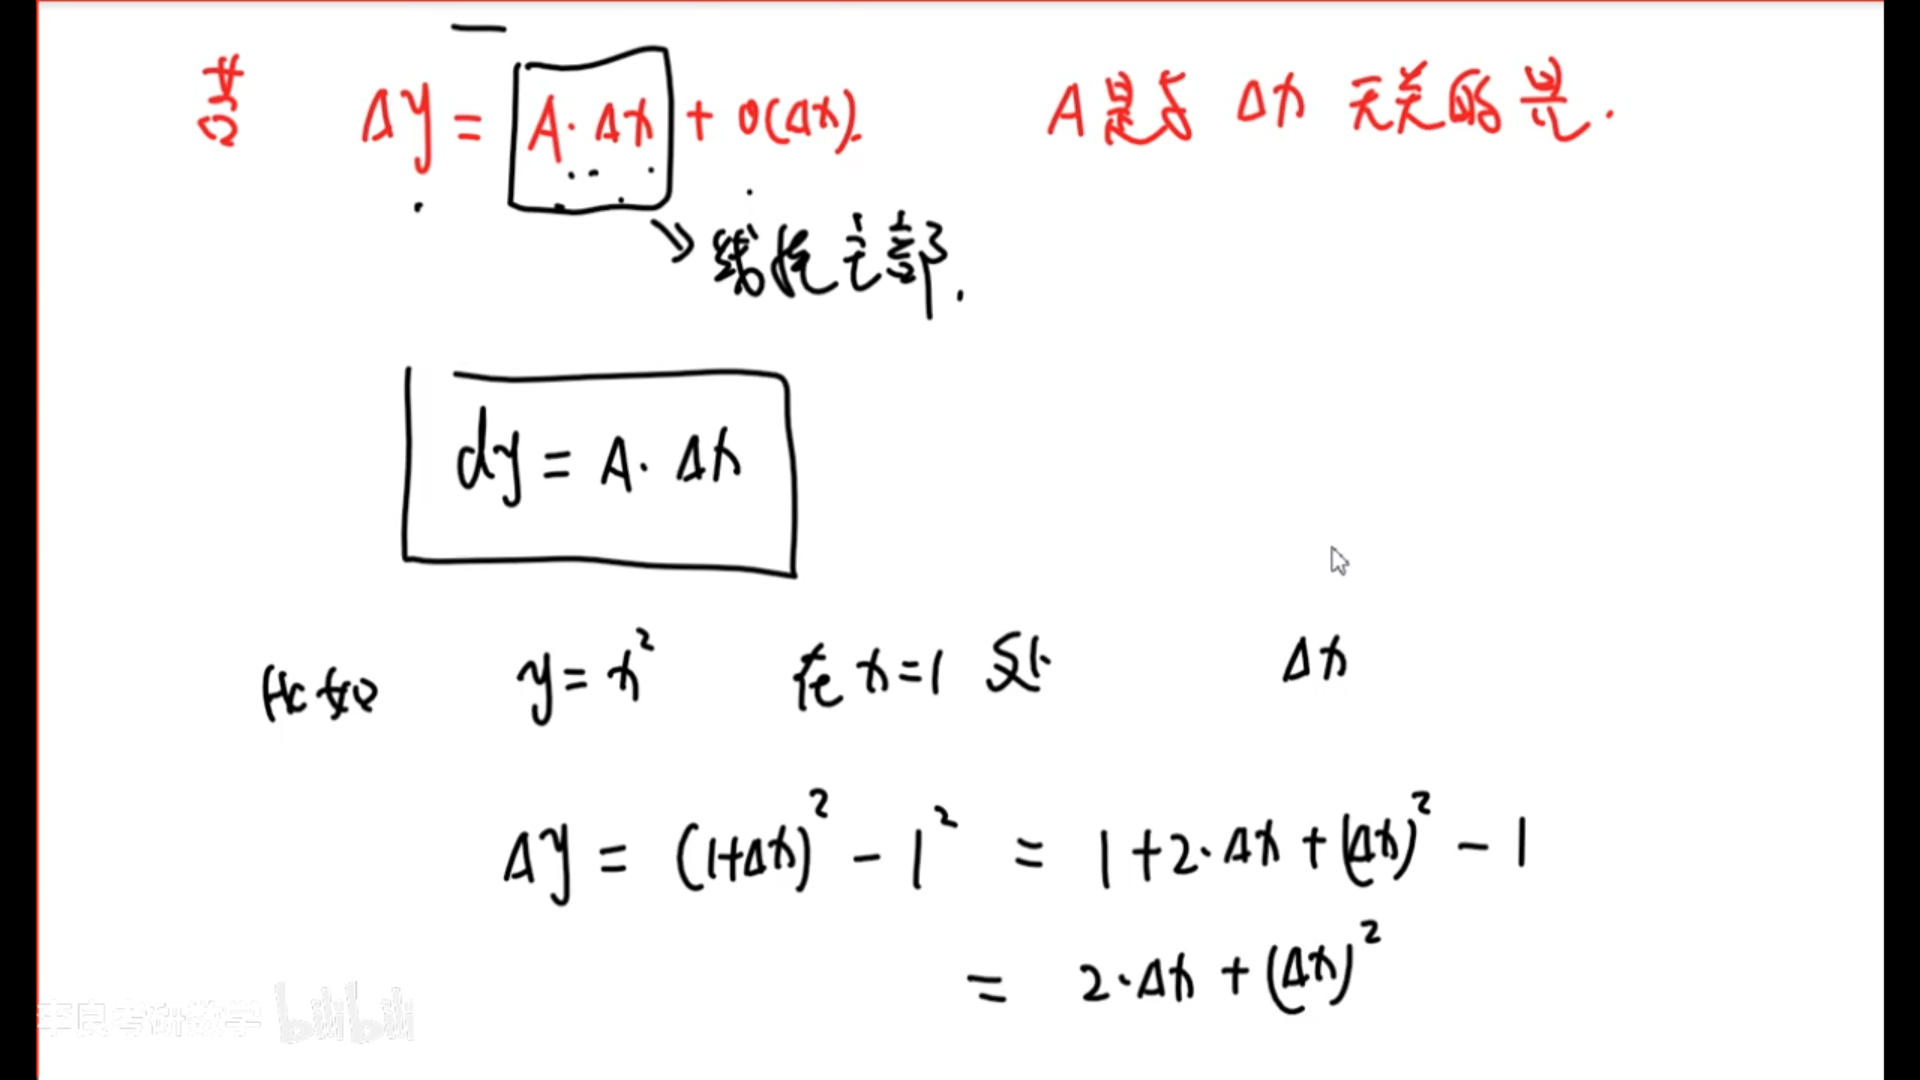 若 Δy = A·Δx + o(Δx). A是与 Δx 无关的量.
线性主部.
dy = A·Δx
比如 y = x² 在 x=1 处 Δx
Δy = (1+Δx)² - 1² = 1+2·Δx+(Δx)² - 1
= 2·Δx + (Δx)²
李良考研数学 bilibili